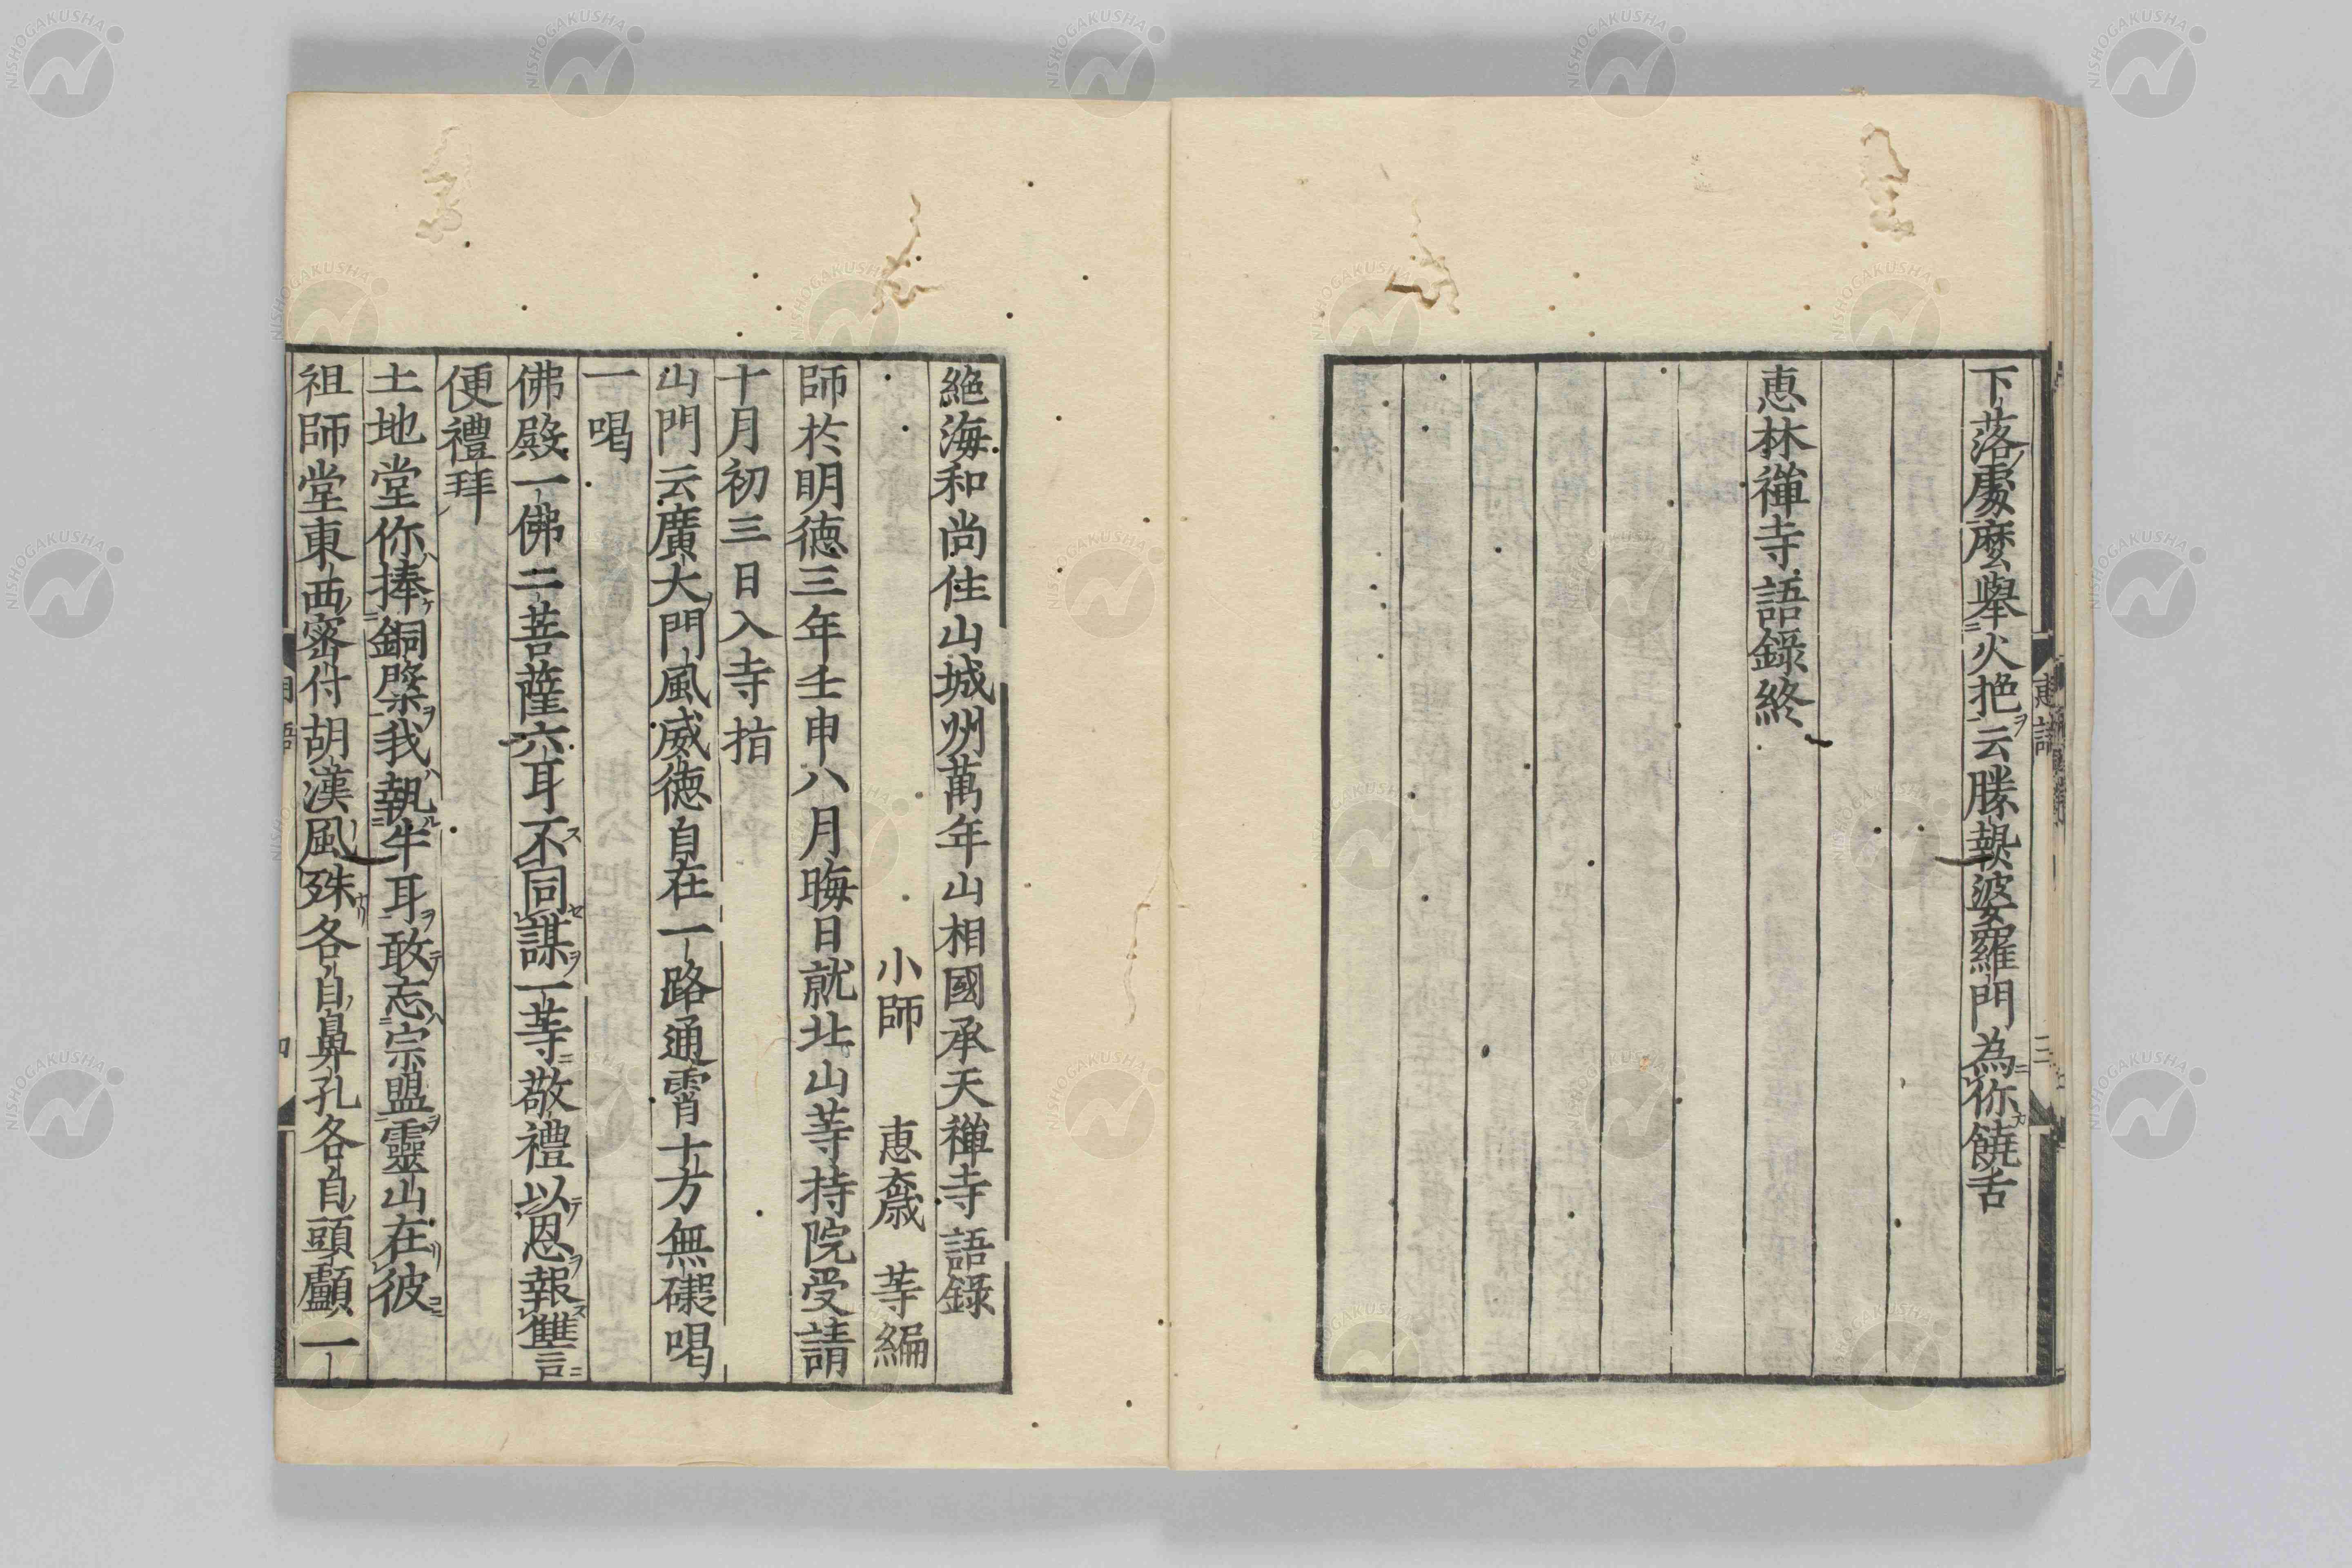 下落處麽擧火把云勝熱婆羅門為你饒舌
惠林禪寺語錄終
絶海和尚住山城州萬年山相國承天禪寺語錄
小師 惠奯 等編
師於明德三年壬申八月晦日就北山等持院受請
十月初三日入寺指
山門云廣大門風威德自在一路通霄十方無礙喝
一喝
佛殿一佛二菩薩六耳不同謀一等敬禮以恩報讎言
便禮拜
土地堂你捧銅槃我執牛耳敢忘宗盟靈山在彼
祖師堂東西密付胡漢風殊各自鼻孔各自頭顱一